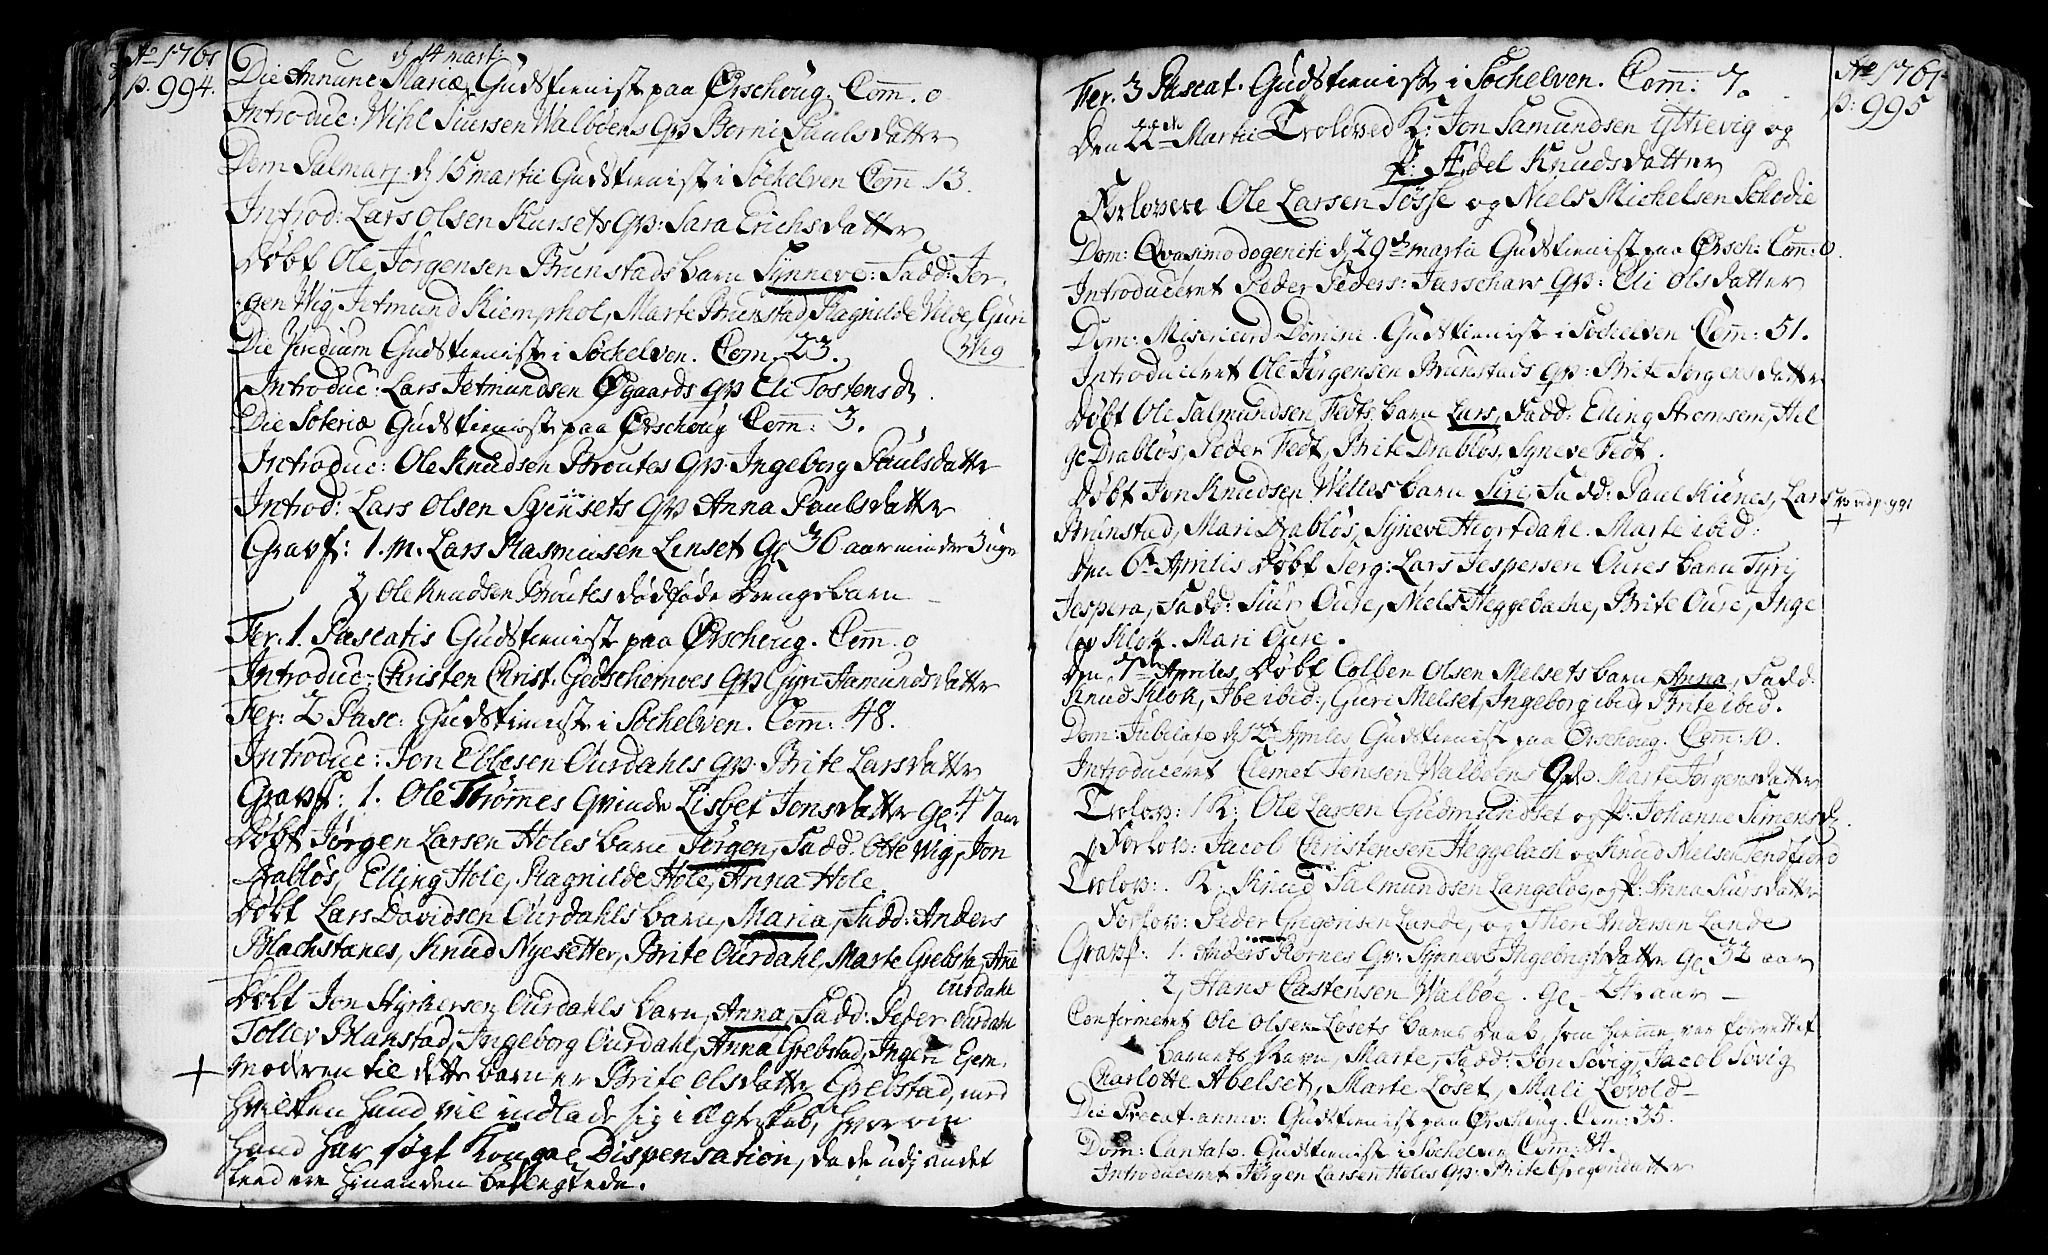 Ao 1761
p. 994.
d 14 martj
Die Annunc: Mariæ, Gudstienist paa Ørschoug. Com̄. 0
Introduc: Wihl Siursen Walbøens qv: Borni Paulsdatter
Dom Palmar d 15 martii Gudstienist i Søchelven Com̄. 13.
Introd: Lars Olsen Kursets qv: Sara Erichsdatter
Døbt Ole Jørgensen Brunstads barn Synneve: Fadd: Jør-
gen Wig, Jetmund Kiemphol, Marte Brunstad, Ragnilde Wiig, Guri
Wig
Die Viridium Gudstienist i Søchelven. Com. 23.
Introduc: Lars Jetmundsen Øgaards qv Eli Tostensd.
Die Soteriæ Gudstienist paa Ørschoug Com̄: 3.
Introduc: Ole Knudsen Broutes qv: Ingeborg Paulsdatter
Introd: Lars Olsen qv Anna Paulsdatter
Gravf: 1. m. Lars Rasmusen Linset gl 36 aar minder 3 uger
2, Ole Knudsen Broutes dødføde drengebarn
Fer. 1. Pascatis Gudstienist paa Ørschoug. Com̄. 0
Introduc: Christen Christ. Giedschernes qv Gjri Hamundsdatter
Fer: 2 Pasc: Gudstienist i Søchelven. Com̄: 48.
Introduc: Jon Ebbesen Ourdahls qv: Brite Larsdatter
Gravf: 1. Ole Trømes qvinde Lisbet Jonsdatter gl: 47 aar
Døbt Jørgen Larsen Holes barn Jørgen, Fadd: Otte Wig, Jon
Drabløs, Elling Hole, Ragnilde Hole, Anna Hole.
Døbt Lars Davidsen Ourdahls barn, Maria, Fadd: Anders
Blachstanes, Knud Nysetter, Brite Ourdahl, Marte Grebsta, Ane
Ourdahl
Døbt Jon Styrkersen Ourdahls barn, Anna, Fadd: Peder Ourdahl
Tollev Blanstad, Ingeborg Ourdahl, Anna Grebstad, Ingeri Ejem.
+ moderen til dette barn er Brite Olsdatter Grebstad, med
hvilken hand vil indlade sig i ægteskab, hvorom
hand har søgt Kongel Dispensation, da de udj andet
leed ere hinanden beslegtede.
Ao 1761
p: 995
Fer. 3 Pascat. Gudstienist i Søchelven. Com̄: 7.
Den 22de Martii Troloved K: Jon Samundsen Yttrevig og
P: Ædel Knudsdatter
Forlovere Ole Larsen Tøsse og Niels Michelsen Schodie
Dom: Qvasimodogeniti d 29de martii Gudstienist paa Ørsch: Com̄: 0.
Introduceret Peder Peders: Farschars qv: Eli Olsdatter
Dom: Misericord Domini. Gudstienist i Søchelven Com̄: 51.
Introduceret Ole Jørgensen Brunstads qv: Brite Jørgensdatter
Døbt Ole Salmundsen Fedts barn Lars, Fadd: Elling Strømsem, Hel
ge Drabløs, Peder Fedt, Brite Drabløs, Syneve Fedt.
Døbt Jon Knudsen Welles barn Siri, Fadd: Paul Kienes, Lars
vid p. 991
+
Brunstad, Mari Drabløs, Syneve Hiortdahl. Marte ibid:
Den 6te Aprilis Døbt Serg: Lars Jespersen Oures barn Tyrij
Jespera, Fadd: Siur Oure, Niels Heggebache, Brite Oure, Inge
bor Klok. Mari Oure.
Den 7de Aprilis Døbt Colben Olsen Melsets barn Anna, Fadd:
Knud Klok, Ibe ibid:, Guri Melset, Ingeborg ibid, Brite ibid.
Dom: Jubilate d 12 Aprilis Gudstienist paa Ørschoug. Com̄: 10.
Introduceret Clemet Jensen Walbøens qv: Marte Jørgensdatter
Trolov: K: Ole Larsen Gudmundset og P: Johanne Simensd.
Forlov: Jacob Christensen Heggebach og Knud Nielsen Tendfiord
Trolov: K: Knud Salmundsen Langeløe, og P: Anna Siursdatter
Forlov: Peder Gregorisen Lande, og Thore Andersen Lande
Gravf: 1. Anders Rørnes qv: Synnev Ingebrigtsdatter gl 32 aar
2, Hans Castensen Walbøe. gl aar
Confirmeret Ole Olsen Løsets barns daab, som hiemme var forrettet
barnets Navn, Marte, Fadd: Jon Søvig, Jacob Søvig
Charlotte Abelset, Marte Løset, Mali Løvold
Die Precat. anniv: Gudstienist paa Ørschoug. Com: 35.
Dom: Cantate. Gudstienist i Søchelven Com: 84.
Introduceret Jørgen Larsen Holes qv: Brite Gregersdatter